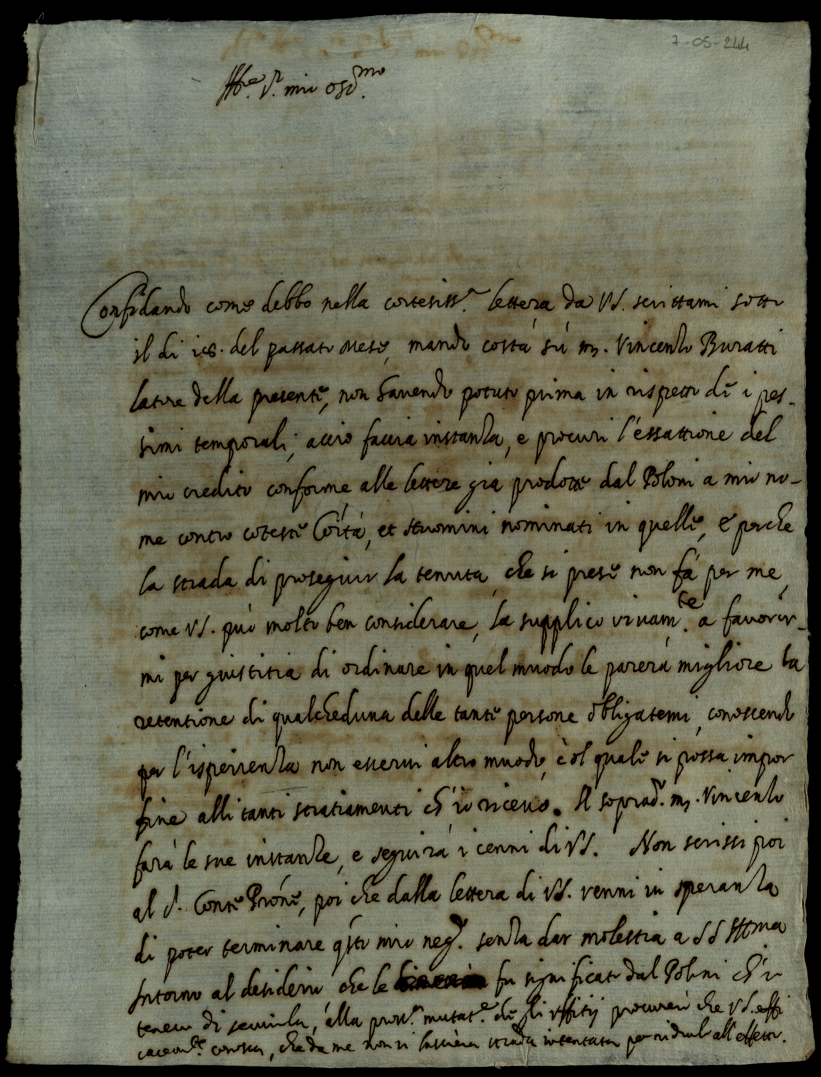 7-05-244
S.r mio oss.mo
Confidando come debbo nella cortesiss.a lettera da VS. scrittami sotto
il di 18. del passato mese, mando costà sù m. Vincenzo Buratti
latore della presente, non havendo potuto prima in rispetto de i pes-
simi temporali, acciò faccia instanza, e procuri l'essattione del
mio credito conforme alle lettere già prodotte dal Poloni a mio no-
me contro coteste Co.ità, et huomini nominati in quelle, e perche
la strada di proseguir la tenuta, che si prese non fà per me,
come VS. può molto ben considerare, la supplico vivam.te a favorir-
mi per giustitia di ordinare in quel muodo le parerà migliore la
retentione di qualcheduna delle tante persone obbligatemi, conoscendo
per l'isperienza non esservi altro muodo, còl quale si possa impor
fine alli tanti stratiamenti ch'io ricevo. Il soprad.o m. Vincenzo
farà le sue instanze, e seguirà i cenni di VS. Non scrissi poi
al S. Conte Pròne, poi che dalla lettera di VS. venni in speranza
di poter terminare q.sto mio neg.o senza dar molestia a SS Ill.ma
Intorno al desiderio che le fu significato dal Poloni ch'io
tenevo di servirla, alla pross.a mutat.e de gli uffitij procurerò che VS. effi
cacem.te conosca, che da me non si lascierà strada intentata per ridurlo all'effetto.